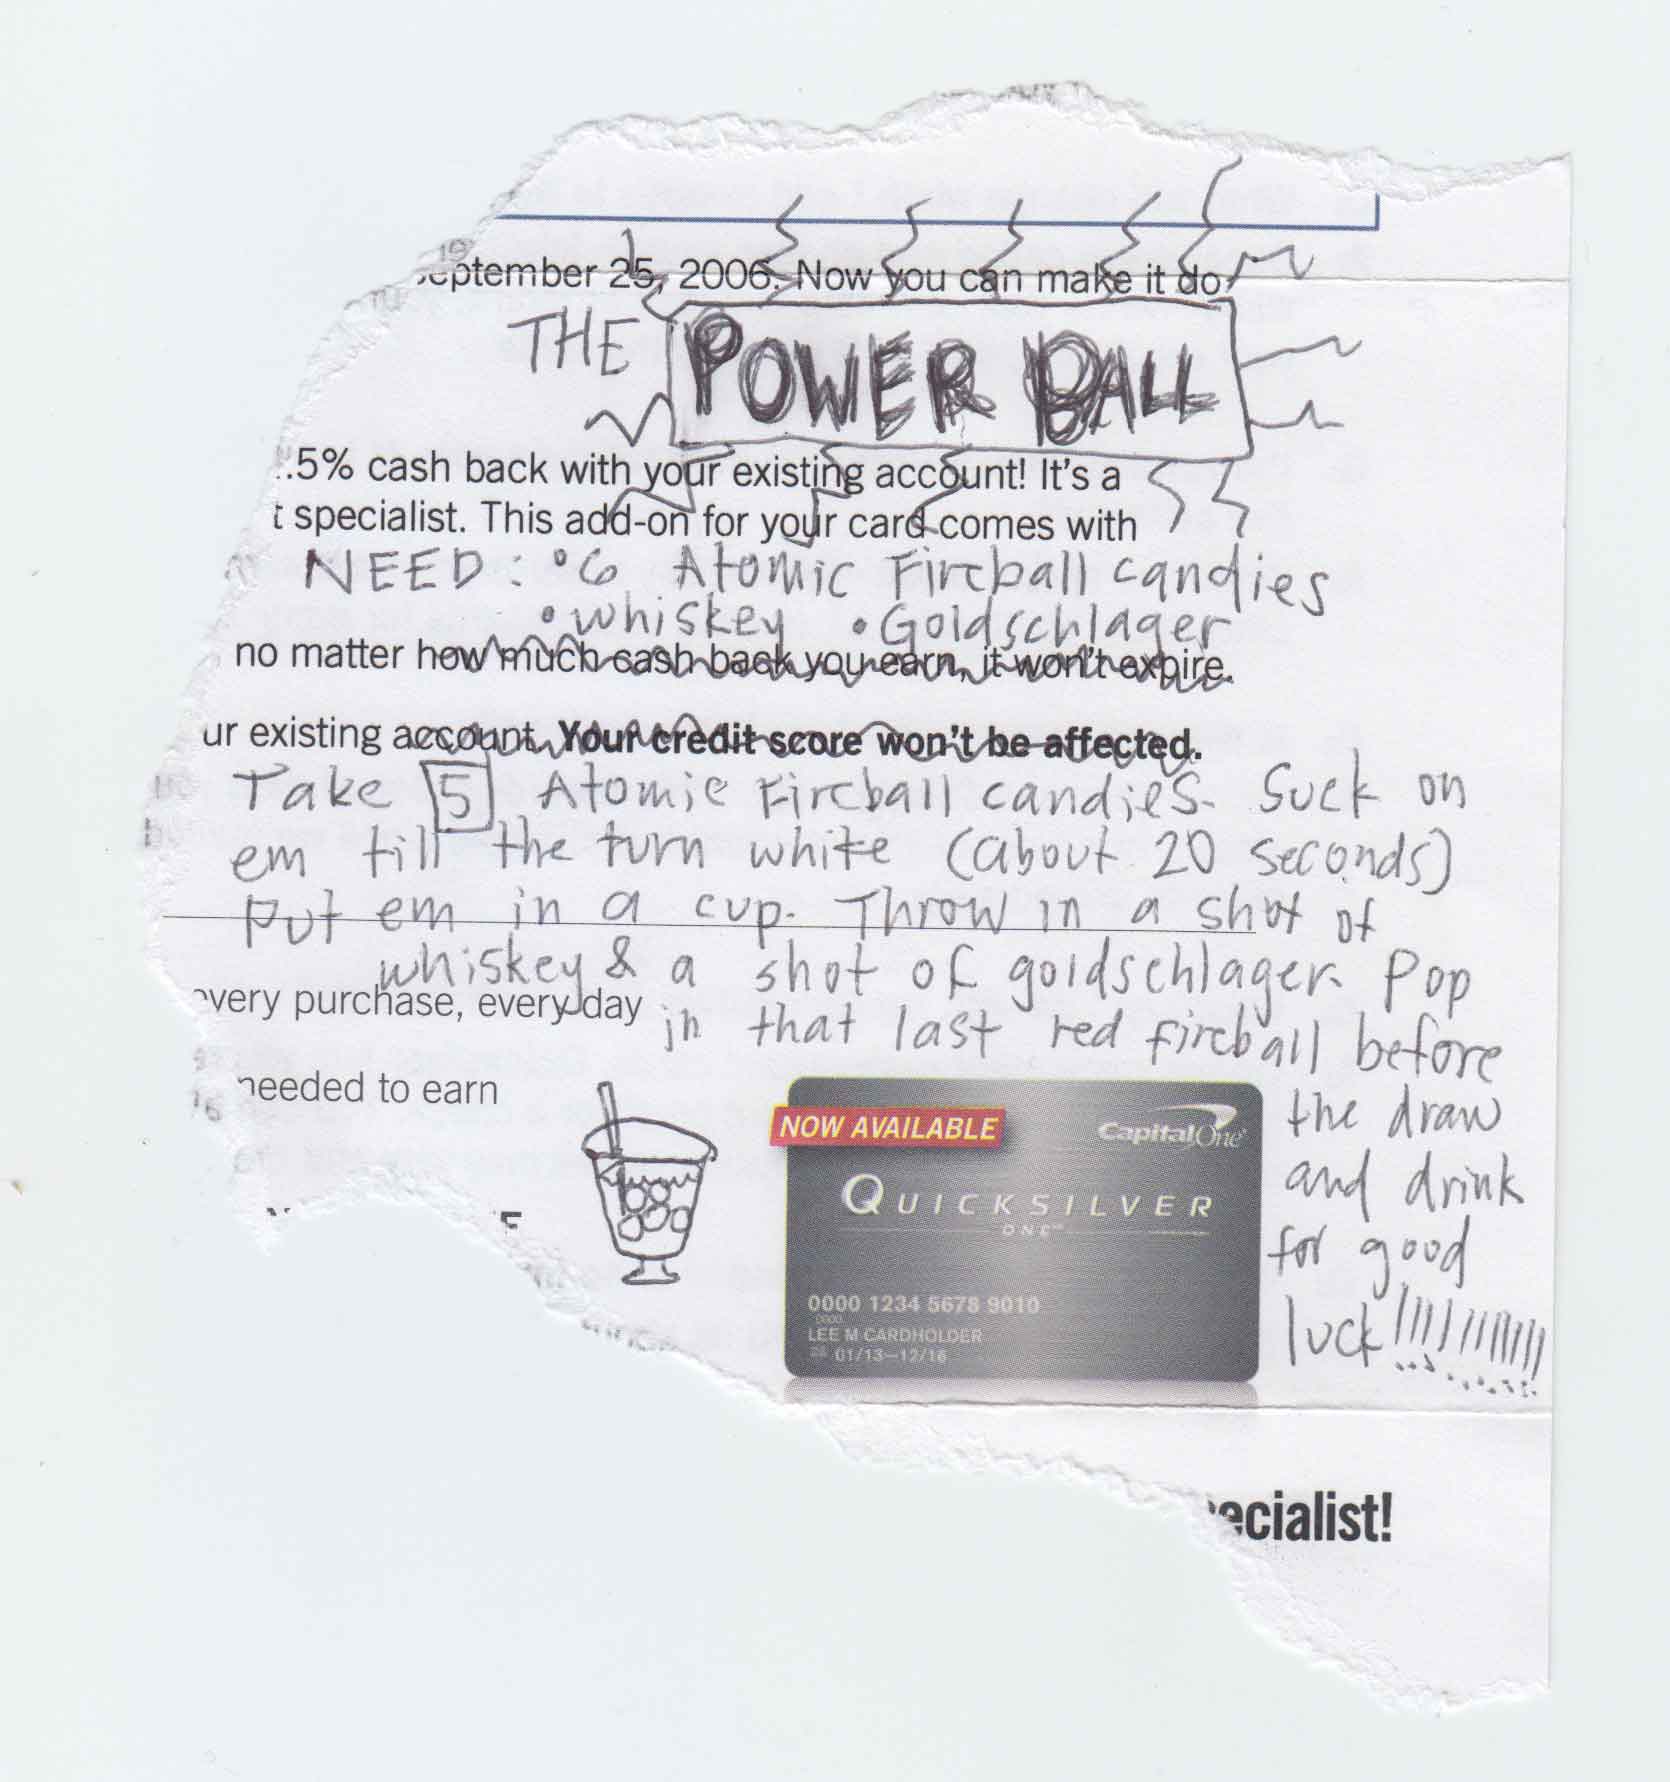 September 25, 2006. Now you can make it do
THE POWER BALL
.5% cash back with your existing account! It's a
t specialist. This add-on for your card comes with
NEED: • 6 Atomic Fireball candies
• whiskey • Goldschlager
no matter how much cash back you earn, it won't expire.
ur existing account. Your credit score won't be affected.
Take 5 Atomic Fireball candies. Suck on
em till the turn white (about 20 seconds)
Put em in a cup. Throw in a shot of
whiskey & a shot of goldschlager. Pop
every purchase, every day
in that last red fireball before
needed to earn
the draw
and drink
for good
luck!!!!!!!!!!!
NOW AVAILABLE
CapitalOne
QUICKSILVER
ONE
0000 1234 5678 9010
0000
LEE M CARDHOLDER
01/13–12/16
ecialist!